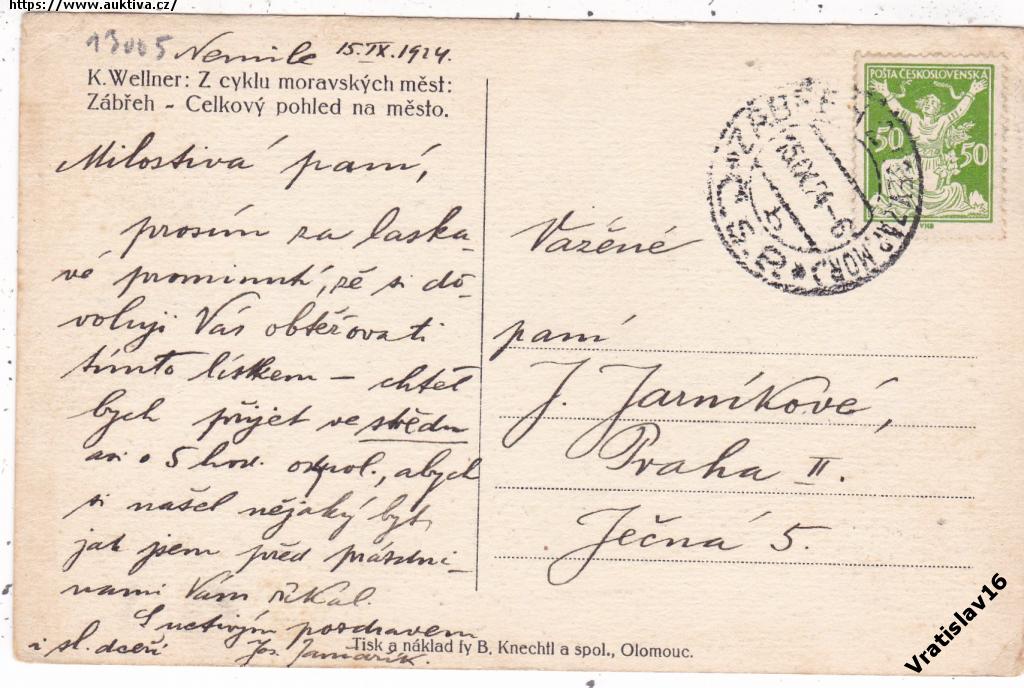 https://www.auktiva.cz/
13005 Nemile 15.IX.1924.
K. Wellner: Z cyklu moravských měst:
Zábřeh - Celkový pohled na město.
POŠTA ČESKOSLOVENSKÁ
50 50
15.IX.24-6
Milostivá paní,
prosím za laska-
vé prominutí, že si do-
voluji Vás obtěžovati
tímto lístkem – chtěl
bych přijet ve středu
asi o 5 hod. odpol., abych
si našel nějaký byt,
jak jsem před prázdni-
nami Vám říkal.
S uctivým pozdravem
i sl. dceři Jos.
Vážené
paní
J. Jarníkové,
Praha II.
Ječná 5.
Tisk a náklad fy B. Knechtl a spol., Olomouc.
Vratislav16